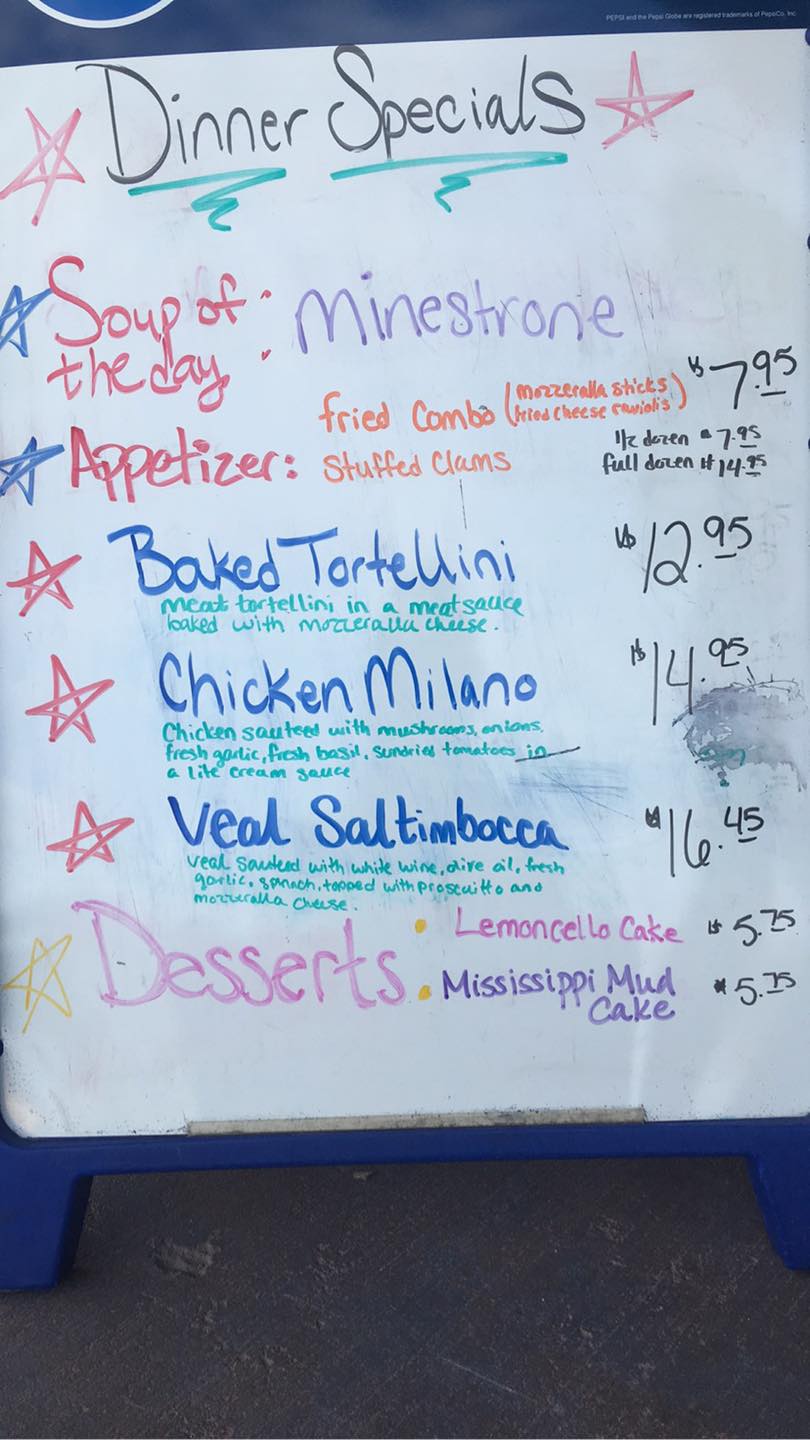 PEPSI and the Pepsi Globe are registered trademarks of PepsiCo, Inc.
Dinner Specials
Soup of the day : Minestrone
fried Combo (mozzeralla sticks fried cheese raviolis) $7.95
Appetizer: Stuffed Clams
1/2 dozen $7.95
full dozen $14.95
Baked Tortellini $12.95
meat tortellini in a meat sauce
baked with mozzeralla cheese.
Chicken Milano $14.95
Chicken sauteed with mushrooms, onions,
fresh garlic, fresh basil, sundried tomatoes in
a lite cream sauce
Veal Saltimbocca $16.45
veal sauteed with white wine, olive oil, fresh
garlic, spinach, topped with proscuitto and
mozzeralla cheese.
Desserts • Lemoncello Cake $5.75
• Mississippi Mud $5.75
Cake